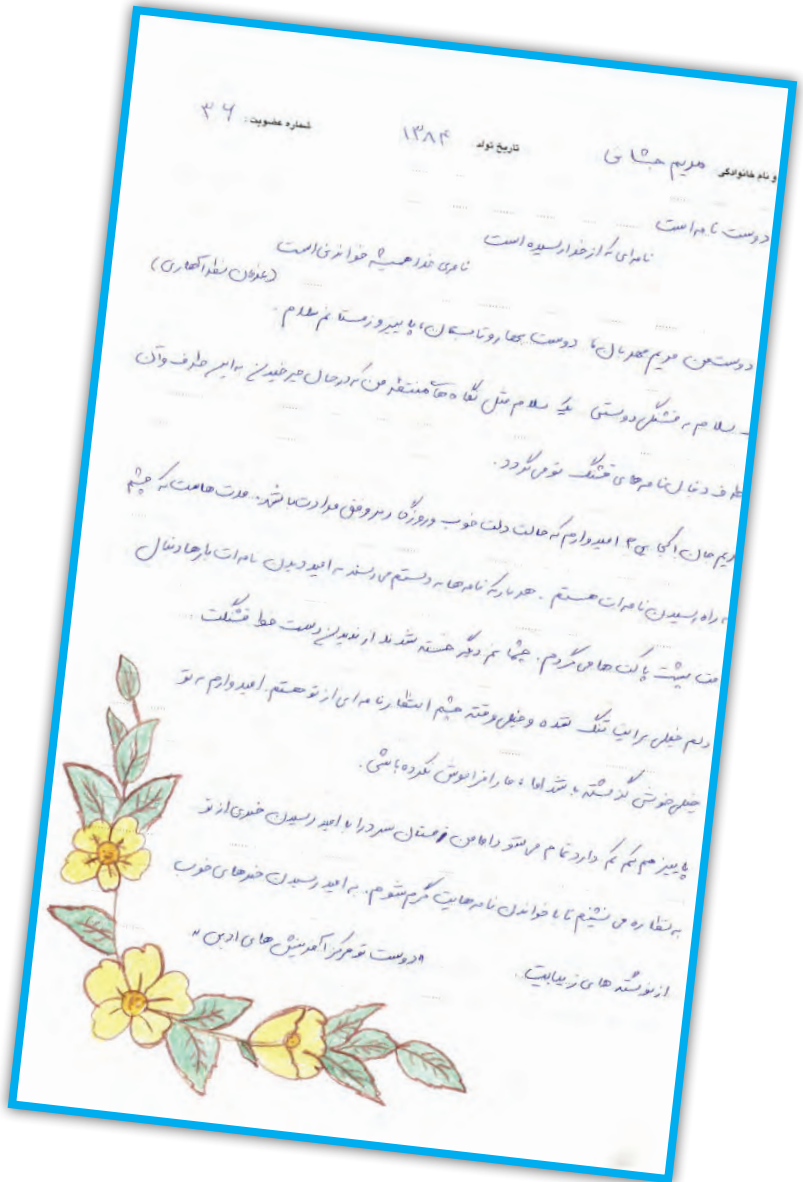 و نام خانوادگی مریم جشانی تاریخ تولد ۱۳۸۴ شماره عضویت: ۳۶
دوست نامه است
نامه‌ای که از خدا رسیده است
نامه‌ی خدا همیشه خواندنی است
(عرفان نظرآهاری)
دوست من مریم مهربان، دوست بهار و تابستان، پاییز و زمستانم سلام.
سلام به قشنگی دوستی. یک سلام مثل نگاه‌های منتظر من که در حال چرخیدن به این طرف و آن
طرف دنبال نامه‌های قشنگ تو می‌گردد.
مریم جان! کجایی؟ امیدوارم که حالت دلت خوب و روزگار بر وفق مرادت باشد. مدت هاست که چشم
به راه رسیدن نامه‌ات هستم. هر بار که نامه‌ها به دستم می‌رسند به امید دیدن نامه‌ات بارها دنبال
پشت پاکت‌ها می‌گردم. چشمانم دیگر خسته شدند از ندیدن دست خط قشنگت.
دلم خیلی برایت تنگ شده و خیلی وقته چشم انتظار نامه‌ای از تو هستم. امیدوارم به تو
خیلی خوش گذشته باشد اما، ما را فراموش نکرده باشی.
پاییز هم کم کم دارد تمام می‌شود اما من زمستان سرد را با امید رسیدن خبری از تو
به نظاره می‌نشینم تا با خواندن نامه‌هایت گرم شوم. به امید رسیدن خبرهای خوب
از نوشته‌های زیبایت.
«دوست تو مرکز آفرینش‌های ادبی»